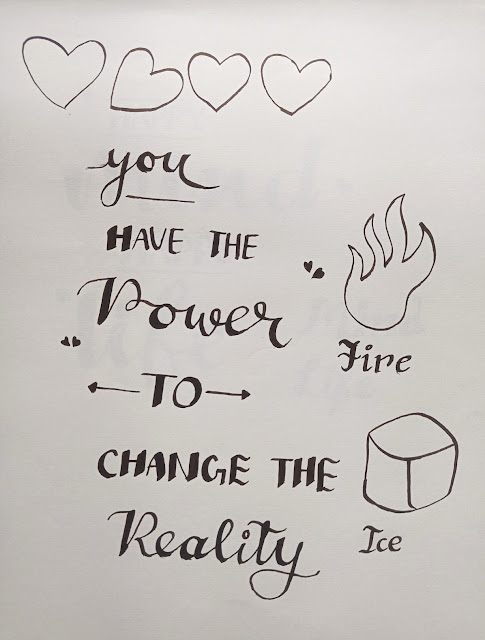 you
HAVE THE
Power
TO
CHANGE THE
Reality
Fire
Ice